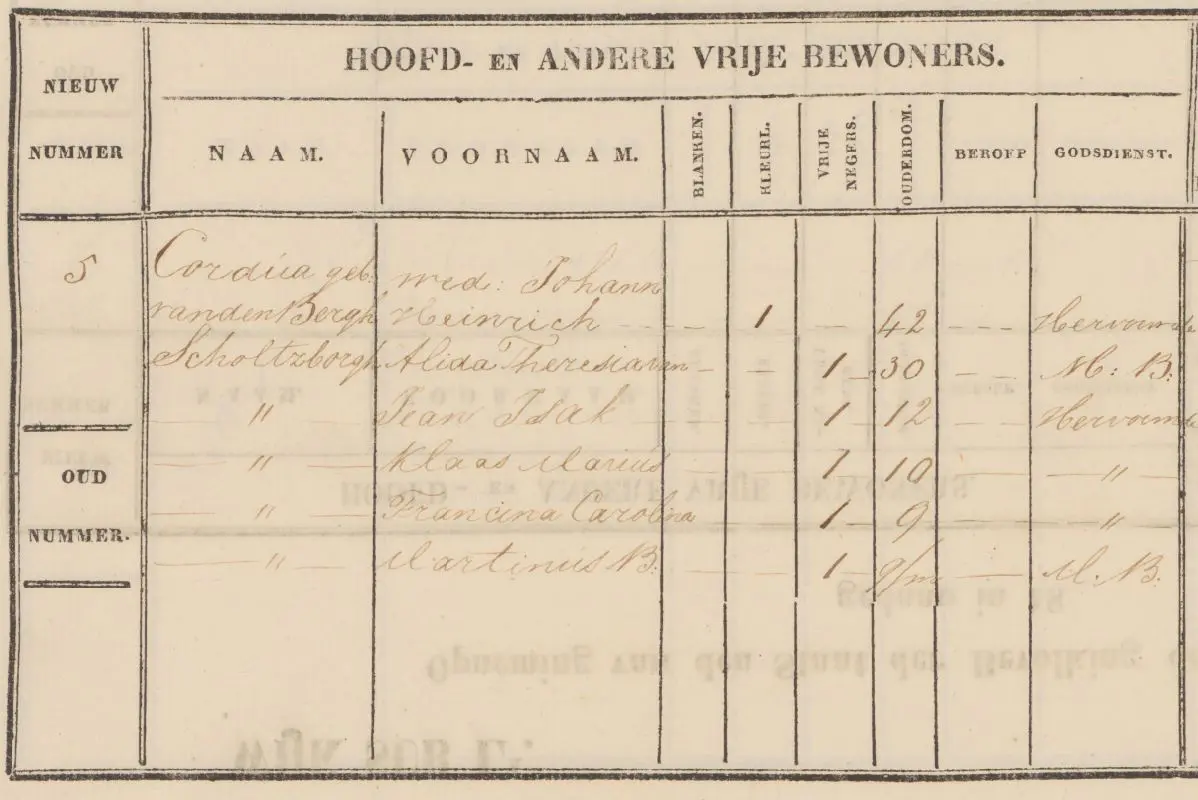 HOOFD- EN ANDERE VRIJE BEWONERS.
NIEUW
NUMMER
NAAM. VOORNAAM. BLANKEN. KLEURL. VRIJE NEGERS. OUDERDOM. BEROEP GODSDIENST.
5 Cordua geb. wed: Johann
van den Bergh Heinrich 1 42 Hervormde
Scholtzborgh Alida Theresia van 1 30 M: B:
" Jean Isak 1 12 Hervormde
" Klaas Marius 1 10 "
OUD
" Francina Carolina 1 9 "
NUMMER.
" Martinus B: 1 9/m M. B: